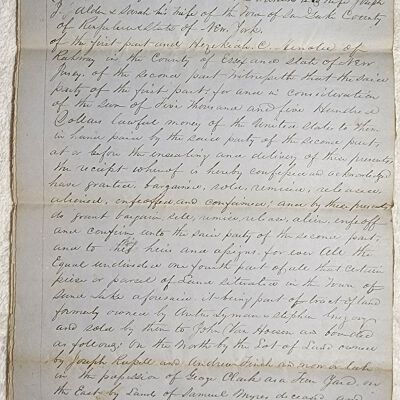 J. Alden & Sarah his wife of the Town of San Lake County
of Rensselaer State of New York.
of the first part and Hezekiah C. of
Rahway in the County of Essex and state of New
Jersey of the second part Witnesseth that the said
party of the first part, for and in consideration
of the sum of Five Thousand and five Hundred
Dollars lawful money of the United States to them
in hand paid by the said party of the second part,
at or before the ensealing and delivery of these presents,
the receipt whereof is hereby confessed and acknowledged
have granted, bargained, sold, remised, released
aliened, enfeoffed and confirmed; and by these presents
do grant bargain sell, remise release, alien, enfeoff
and confirm unto the said party of the second part,
and to his heirs and assigns for ever All the
Equal undivided one fourth part of all that certain
piece or parcel of Land situated in the Town of
Sand Lake aforesaid, it being part of tract of land
formerly owned by Lyman & Stephen Gregory
and sold by them to John Van Hoesen as bounded
as follows; On the North by the Lot of Land owned
by Joseph Russell and Andrew Finch as now or late
in the possession of George Clark as a Tan Yard, on
the East by Lands of Samuel Myers deceased and